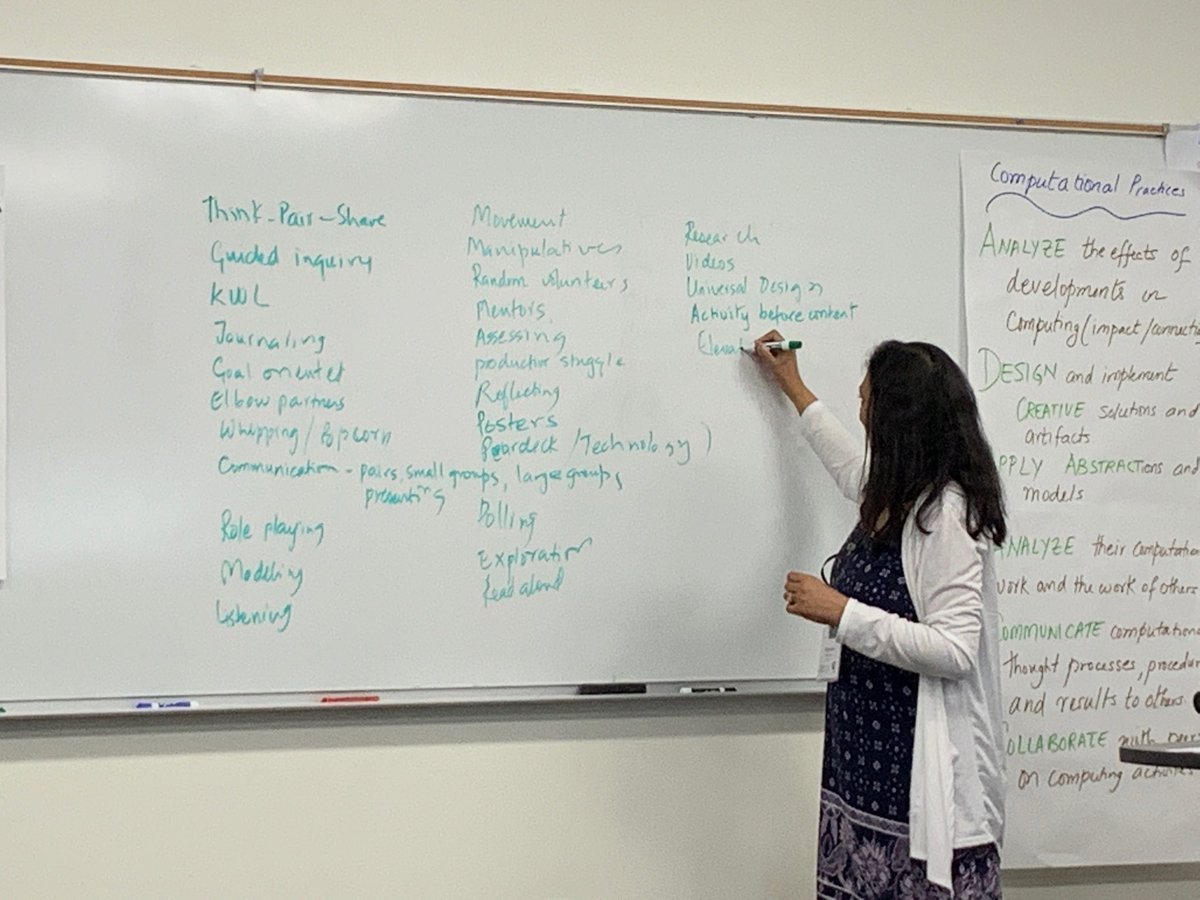 Think-Pair-Share
Guided inquiry
KWL
Journaling
Goal oriented
Elbow partners
Whipping / Popcorn
Communication - pairs, small groups, large groups,
presenting
Role playing
Modeling
Listening
Movement
Manipulatives
Random volunteers
Mentors
Assessing
productive struggle
Reflecting
Posters
Peardeck / Technology )
Polling
Exploration
Read aloud
Research
Videos
Universal Design
Activity before content
Computational Practices
ANALYZE the effects of
developments in
Computing (impact/
DESIGN and implement
CREATIVE solutions and
artifacts
PPLY ABSTRACTIONS and
models
ANALYZE their
work and the work of others
COMMUNICATE
thought processes,
and results to others
COLLABORATE with
on computing